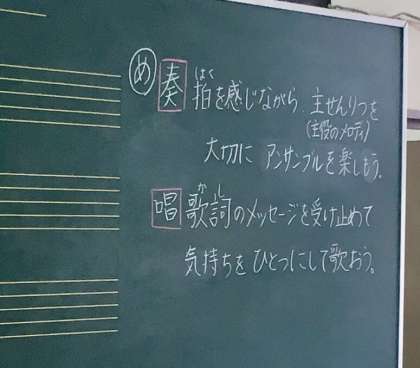 め 奏 拍を感じながら、主せんりつを
はく
(主役のメロディ)
大切に アンサンブルを楽しもう。
唱 歌詞のメッセージを受け止めて
かし
気持ちを ひとつにして歌おう。